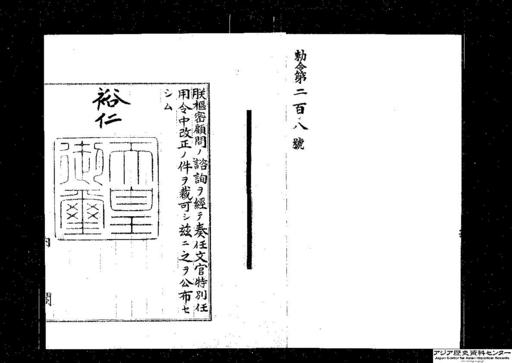 勅令第二百八號
朕樞密顧問ノ諮詢ヲ經テ奏任文官特別任
用令中改正ノ件ヲ裁可シ茲ニ之ヲ公布セ
シム
裕仁
天皇
御璽
内閣
アジア歴史資料センター
Japan Center for Asian Historical Records